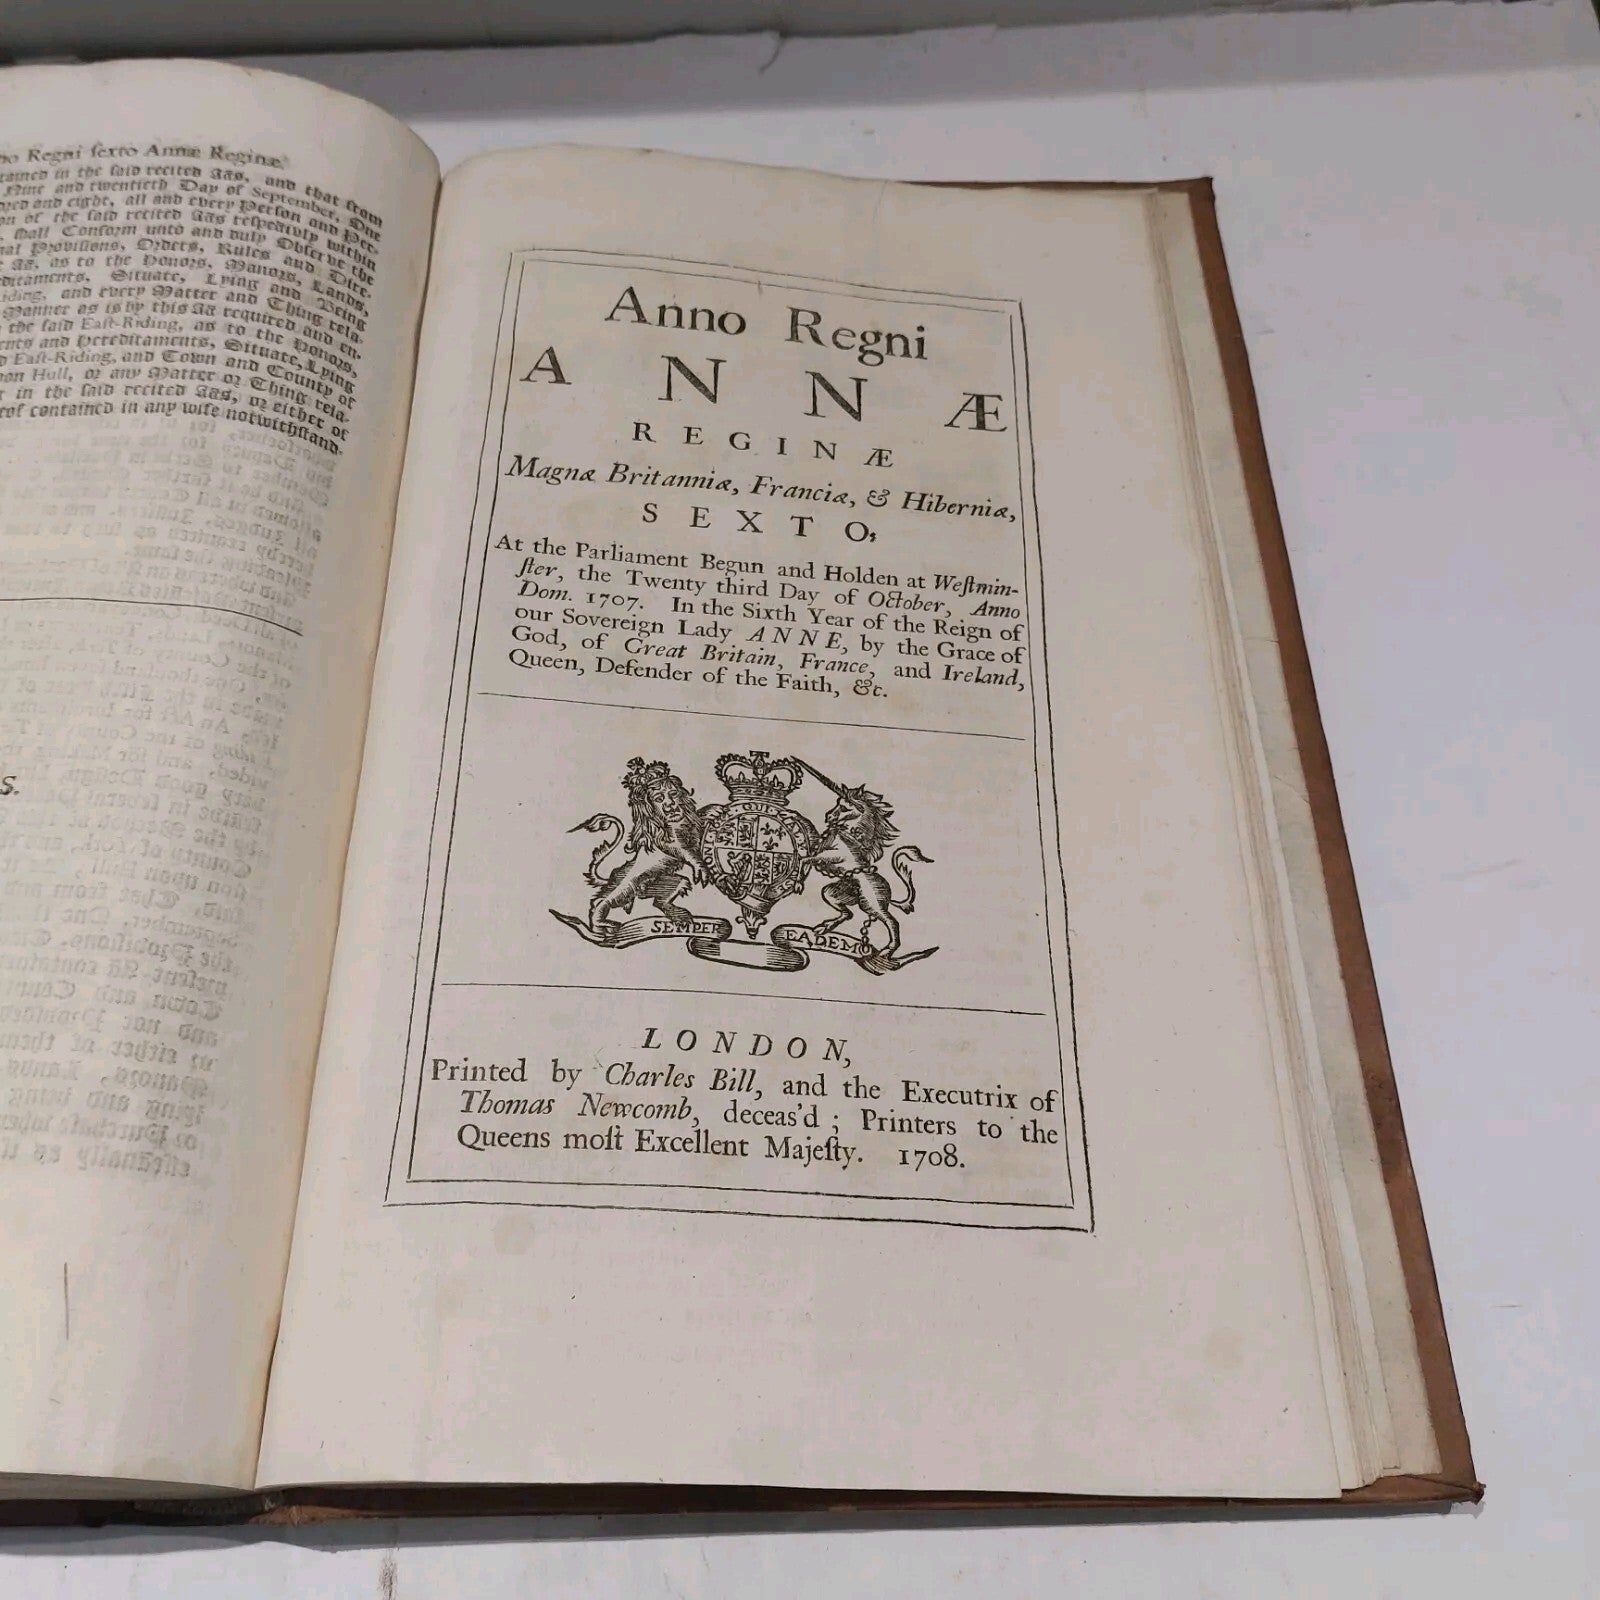 no Regni sexto Annæ Reginæ.
tained in the said recited Acts, and that from
Nine and twentieth Day of September, One
dred and eight, all and every Person and Per-
on of the said recited Acts respectively within
shall Conform unto and duly Observe the
nal Provisions, Orders, Rules and Dire-
Act, as to the Honors, Manors, Lands,
ditaments, Situate, Lying and Being
iding, and every Matter and Thing rela-
Manner as is by this Act required and en-
the said East-Riding, as to the Honors,
ents and Hereditaments, Situate, Lying
d East-Riding, and Town and County of
pon Hull, or any Matter or Thing rela-
r in the said recited Acts, or either of
rof contained in any wise notwithstand-
S.
Anno Regni
ANNÆ
REGINÆ
Magnæ Britanniæ, Franciæ, & Hiberniæ,
SEXTO.
At the Parliament Begun and Holden at Weſtmin-
ſter, the Twenty third Day of October, Anno
Dom. 1707. In the Sixth Year of the Reign of
our Sovereign Lady ANNE, by the Grace of
God, of Great Britain, France, and Ireland,
Queen, Defender of the Faith, &c.
QUI
SEMPER EADEM
LONDON,
Printed by Charles Bill, and the Executrix of
Thomas Newcomb, deceas'd; Printers to the
Queens moſt Excellent Majeſty. 1708.